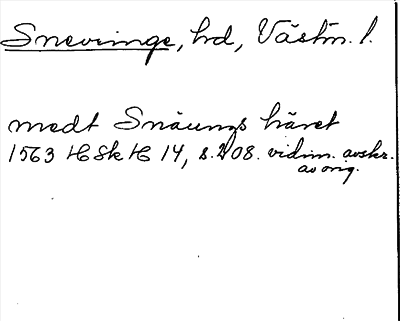 Snevringe, hd, Västm. l.
medt Snäungs häret
1563 HSkH 14, s. 208. vidim. avskr.
av orig.